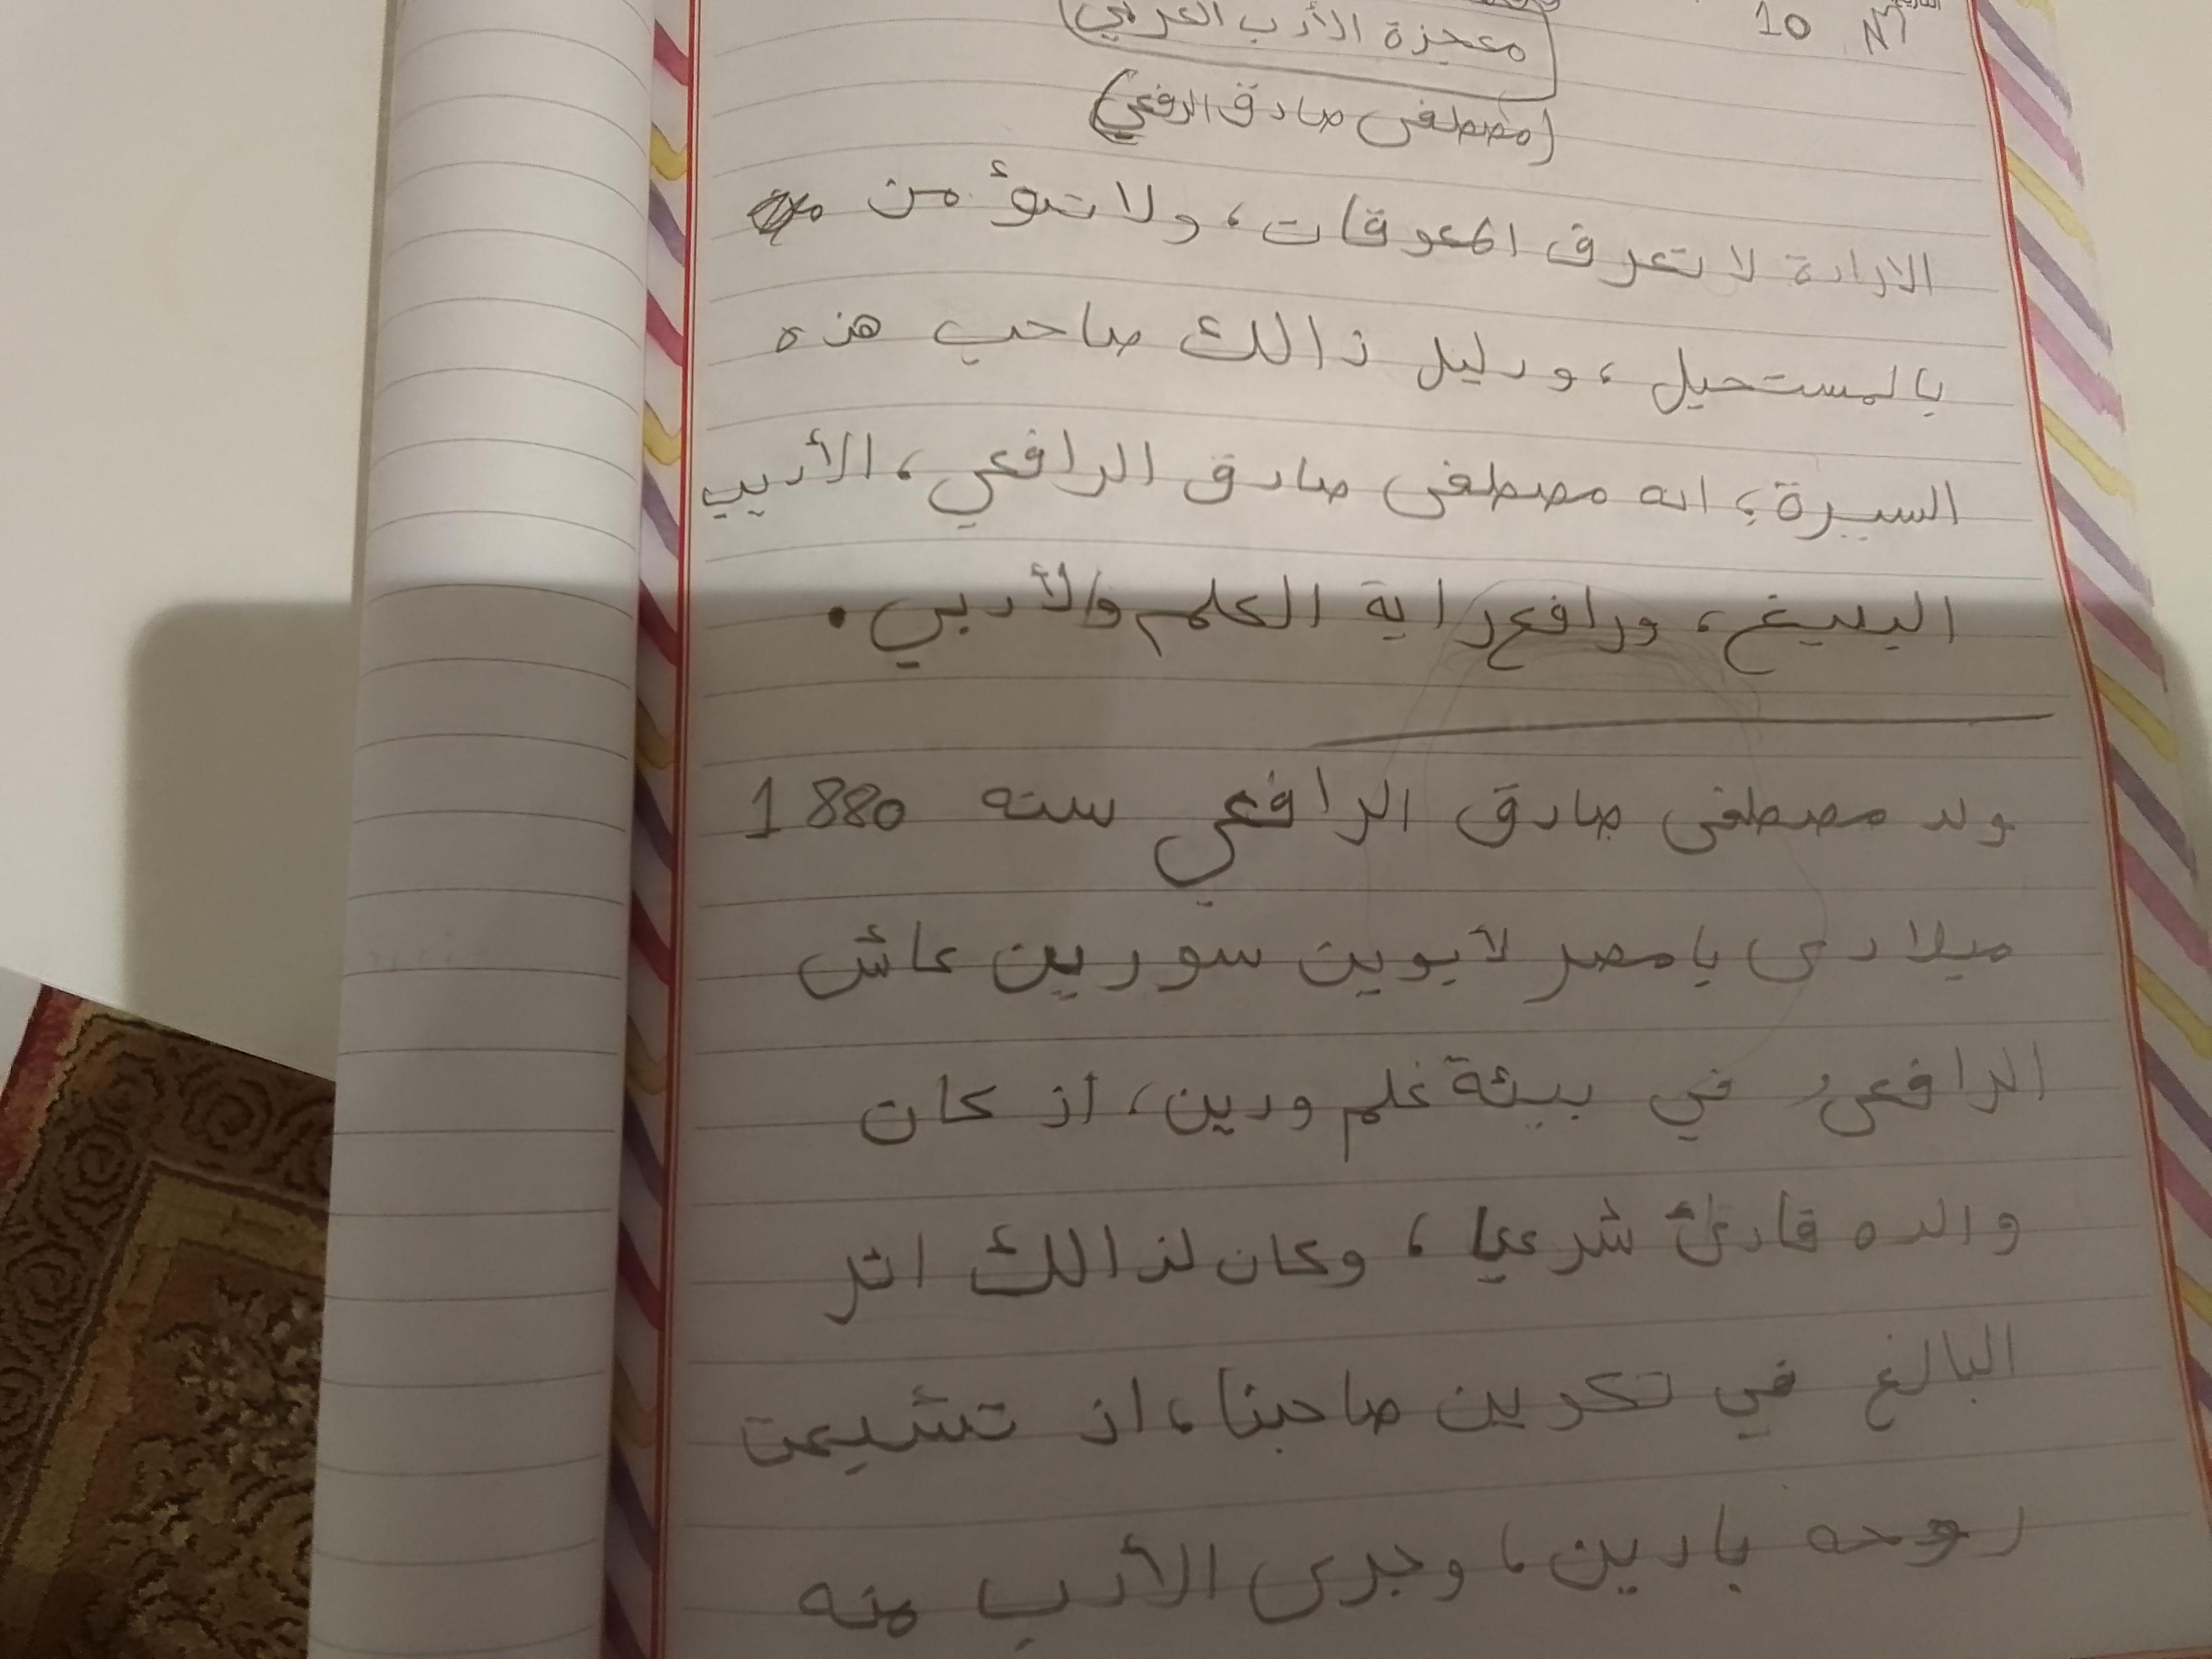 10
معجزة الأدب العربي
(مصطفى صادق الرفعي)
الارادة لا تعرف المعوقات، ولا تؤمن
بالمستحيل، ودليل ذالك صاحب هذه
السيرة؛ انه مصطفى صادق الرافعي، الأديب
البليغ، ورافع راية العلم والأدبي.
ولد مصطفى صادق الرافعي سنه 1880
ميلادى بامصر لأبوين سورين عاش
الرافعى في بيئة علم ودين، اذ كان
والده قارئ شرعيا، وكان لذالك اثر
البالغ في تكوين صاحبنا، اذ تشبعت
روحه بادين، وجرى الأدب منه